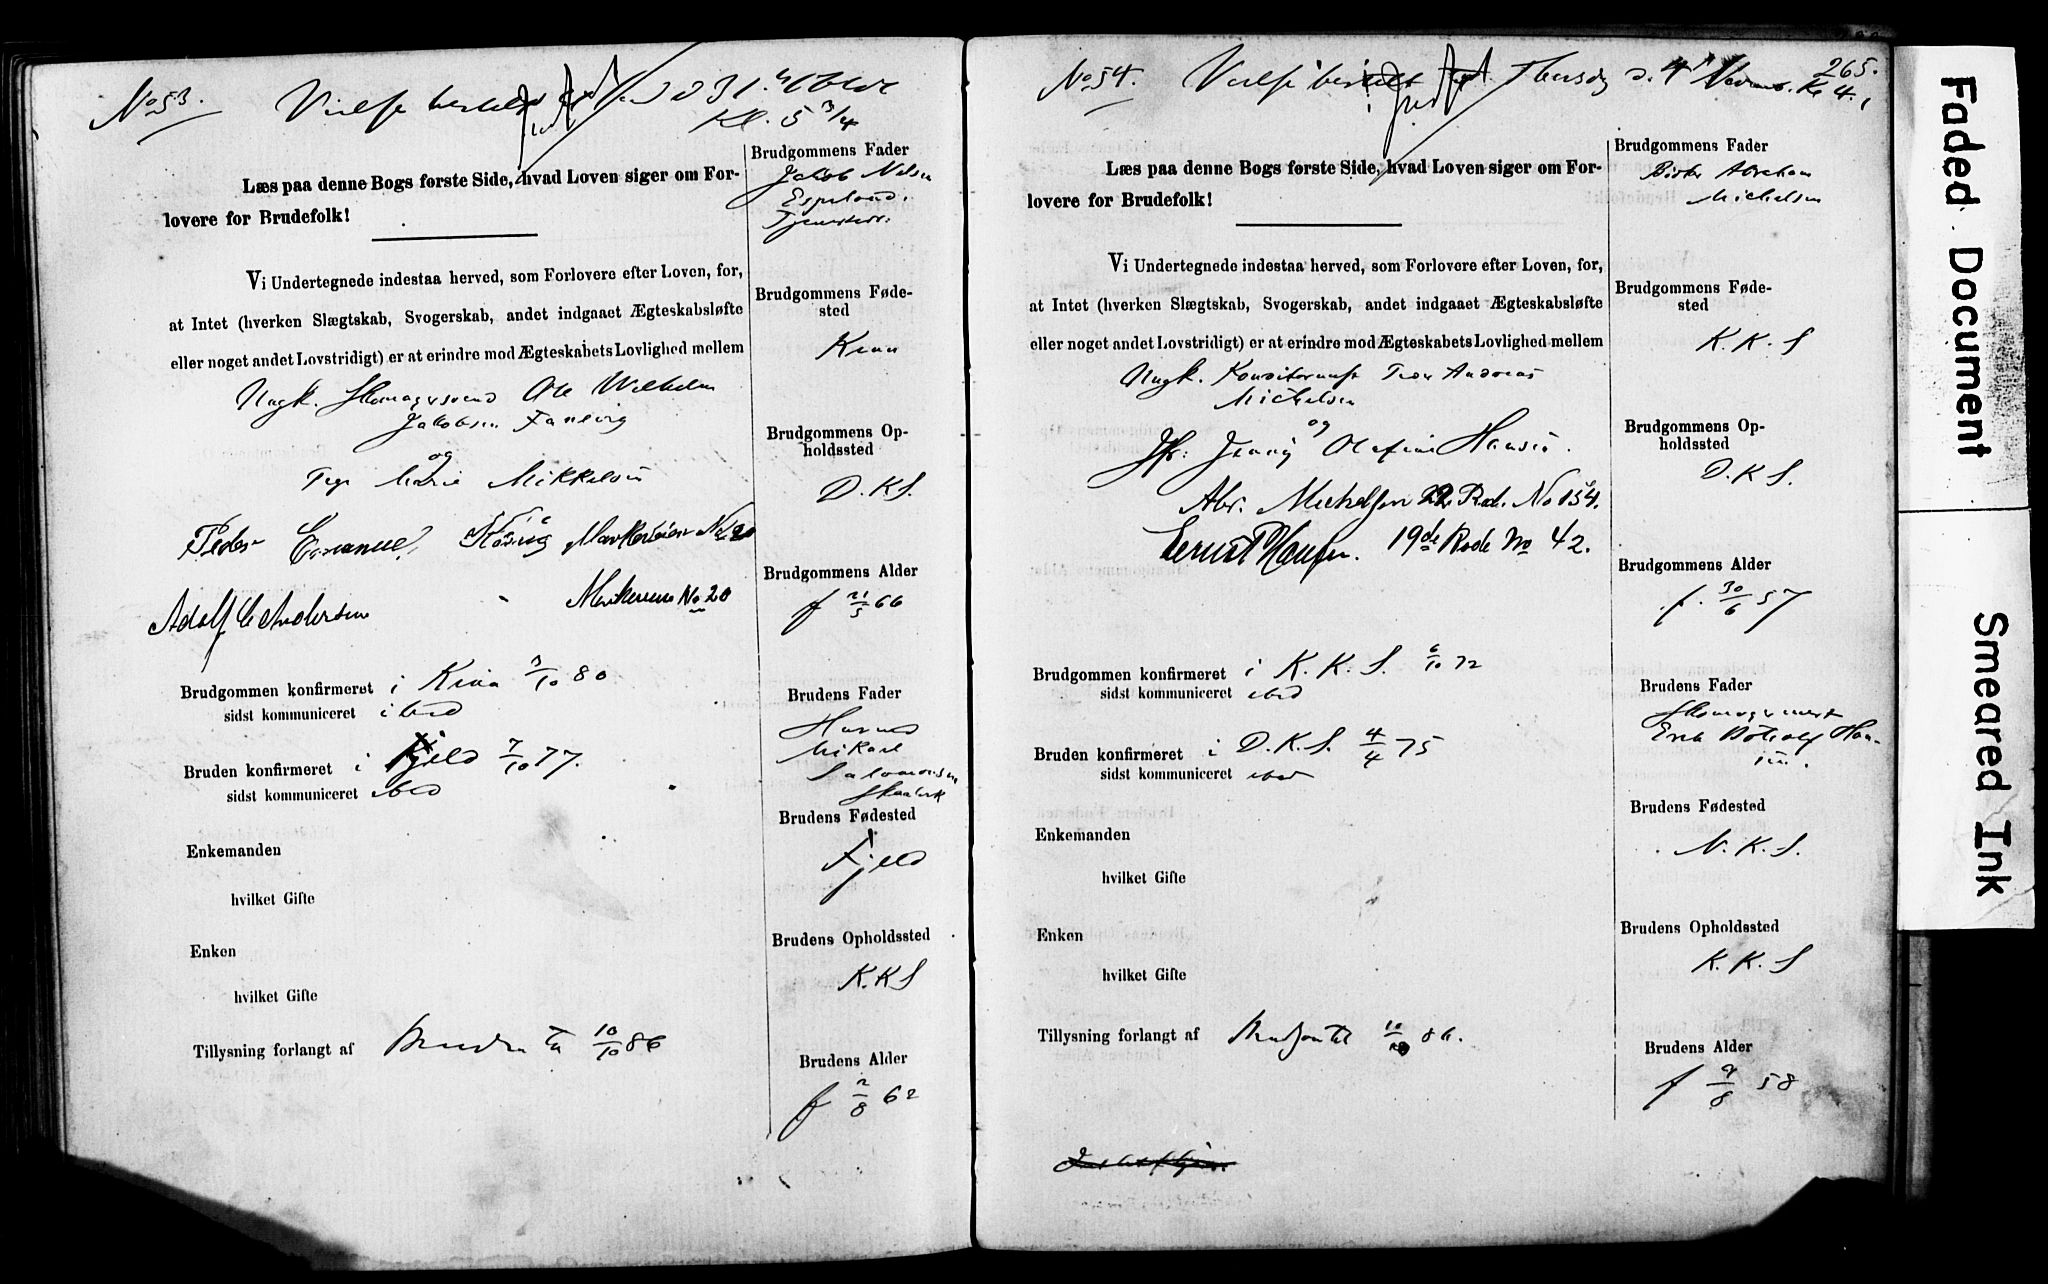 No 53.
Vielse bestilt d 31.
Kl. 5 3/4
Læs paa denne Bogs første Side, hvad Loven siger om For-
lovere for Brudefolk!
Vi Undertegnede indestaa herved, som Forlovere efter Loven, for,
at Intet (hverken Slægtskab, Svogerskab, andet indgaaet Ægteskabsløfte
eller noget andet Lovstridigt) er at erindre mod Ægteskabets Lovlighed mellem
Ungk. Skomagersvend Ole Wilhelm
Jakobsen
og
Pige Marie Mikkelsen
Peder Emanuel No 20
Adolf C Andersen No 20
Brudgommen konfirmeret i Kinn 3/10 80
sidst kommuniceret ibid
Bruden konfirmeret i Fjeld 7/10 77.
sidst kommuniceret ibid
Enkemanden
hvilket Gifte
Enken
hvilket Gifte
Tillysning forlangt af Bruden til 10/10 86
Brudgommens Fader
Jakob Nilsen
Espeland.
Brudgommens Føde-
sted
Kinn
Brudgommens Op-
holdssted
D. K S.
Brudgommens Alder
f 21/5 66
Brudens Fader
Mikael
Salomonsen
Brudens Fødested
Fjeld
Brudens Opholdssted
K. K S
Brudens Alder
f 2/8 62
265.
No 54.
Vielse bestilt Thorsdag d. 4 Novemb. Kl 4.
Læs paa denne Bogs første Side, hvad Loven siger om For-
lovere for Brudefolk!
Vi Undertegnede indestaa herved, som Forlovere efter Loven, for,
at Intet (hverken Slægtskab, Svogerskab, andet indgaaet Ægteskabsløfte
eller noget andet Lovstridigt) er at erindre mod Ægteskabets Lovlighed mellem
Ungk. Andreas
Michelsen
og
Jfr. Jenny Olefine Hansen.
Abr. Michelsen 22 Rode. No 154.
Bernt Hansen. 19de Rode No 42.
Brudgommen konfirmeret i K. K. S. 6/10 72
sidst kommuniceret ibid
Bruden konfirmeret i D. K. S. 4/4 75
sidst kommuniceret ibid
Enkemanden
hvilket Gifte
Enken
hvilket Gifte
Tillysning forlangt af Brudgom til 10/10 86.
Brudgommens Fader
Abraham
Michelsen
Brudgommens Føde-
sted
K. K. S
Brudgommens Op-
holdssted
D. K. S.
Brudgommens Alder
f. 30/6 57
Brudens Fader
Skomagermest
Erik Botolf Han-
sen.
Brudens Fødested
N. K. S.
Brudens Opholdssted
K. K. S
Brudens Alder
f 9/8 58
Faded Document
Smeared Ink